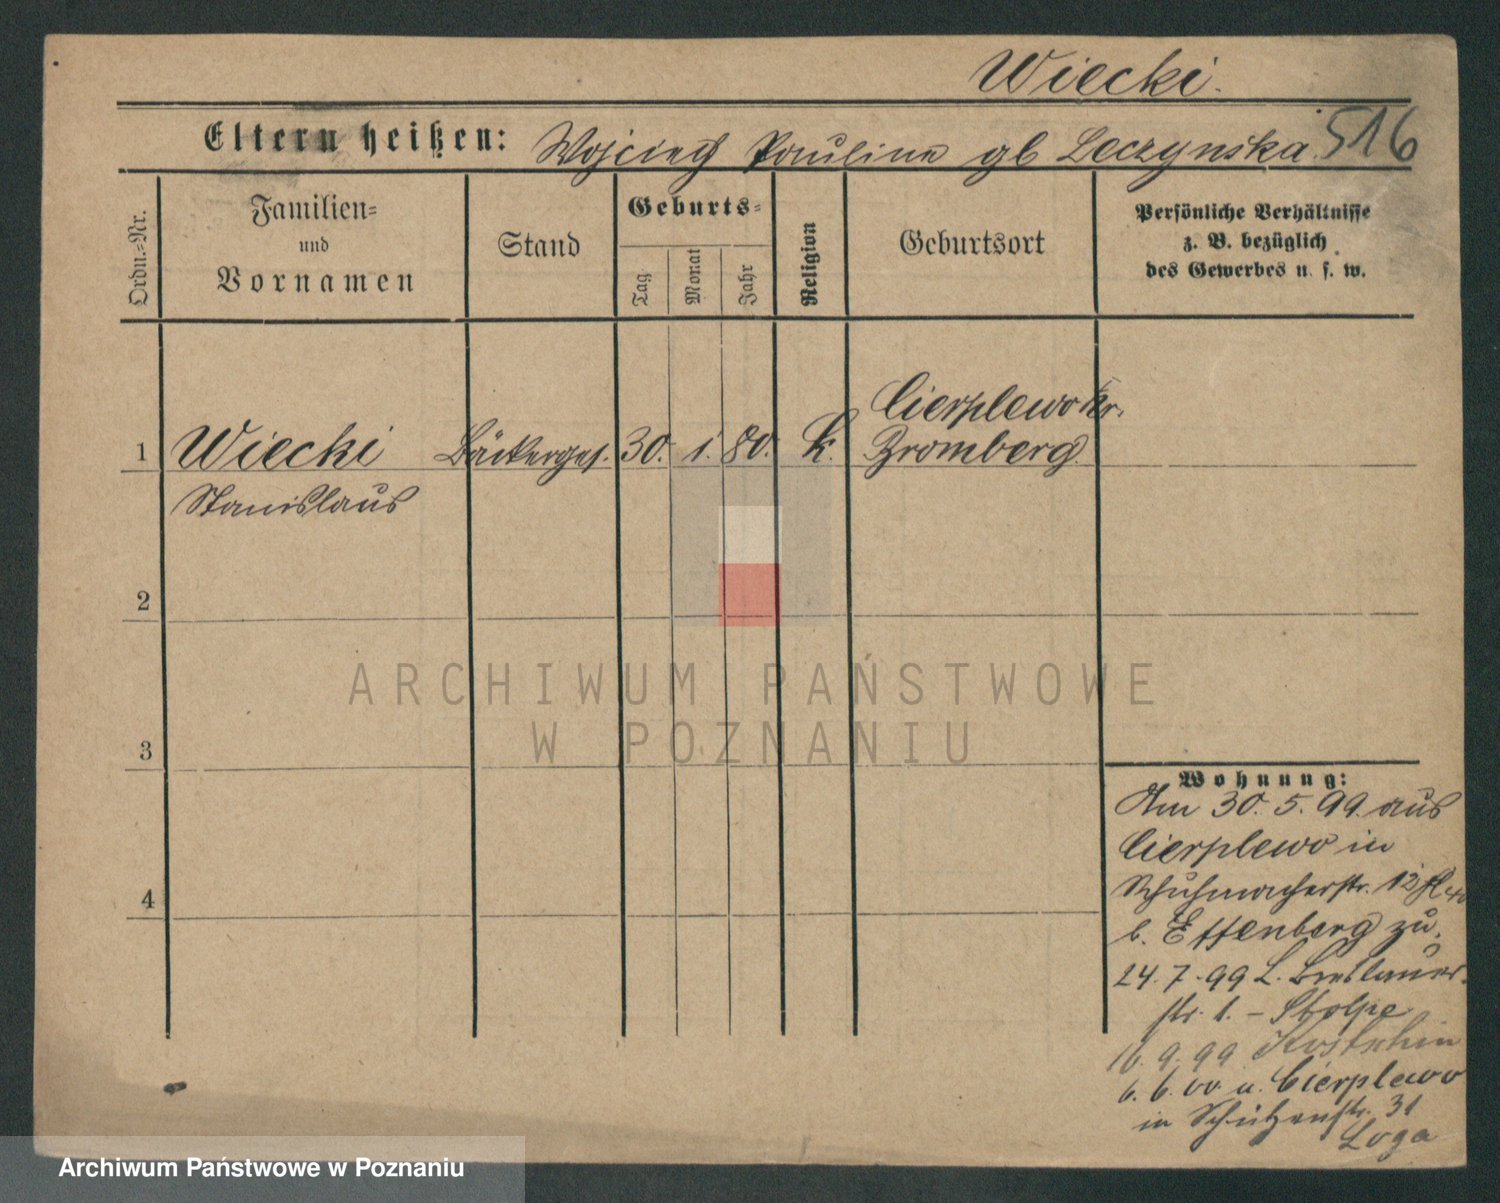 Wiecki.
Eltern heißen: Wojciech Paulina gb Leczynska 516
Ordn.=Nr.
Familien=
und
Vornamen
Stand
Geburts=
Tag
Monat
Jahr
Religion
Geburtsort
Persönliche Verhältnisse
z. B. bezüglich
des Gewerbes u. s. w.
1 Wiecki Bäckerges. 30. 1. 80. k. Cierplewo Kr.
Stanislaus Bromberg
2
3
4
Wohnung:
Am 30. 5. 99. aus
Cierplewo in
Schuhmacherstr. 12
b. Effenberg zu.
24. 7. 99 Breslauer
str. 1. –
9. 99 Kostschin
6. 6. 00 u. Cierplewo
in Schützenstr. 31
Loga
ARCHIWUM PAŃSTWOWE
W POZNANIU
Archiwum Państwowe w Poznaniu